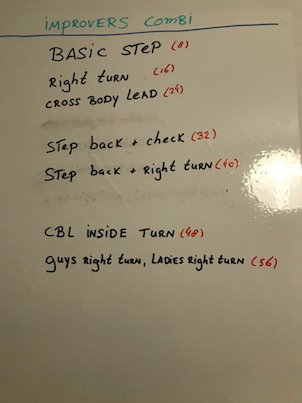 IMPROVERS COMBI
BASIC STEP (8)
Right turn (16)
CROSS BODY LEAD (24)
STEP back + check (32)
STEP back + Right turn (40)
CBL INSIDE TURN (48)
guys Right turn, LADIES Right turn (56)